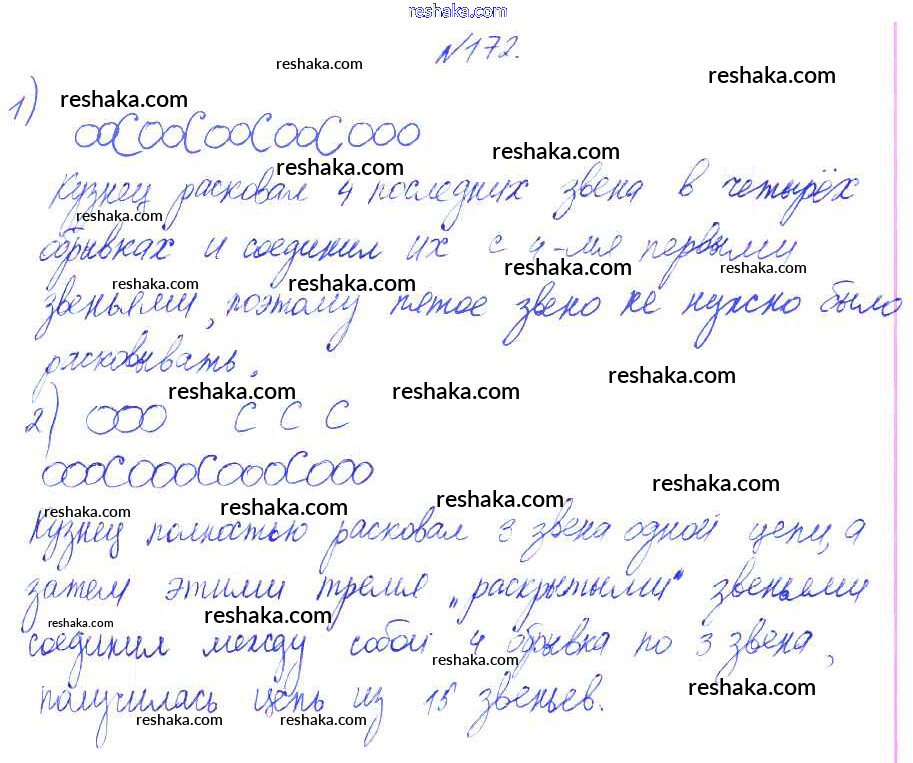 reshaka.com
№172.
reshaka.com
reshaka.com
1)
reshaka.com
reshaka.com
reshaka.com
Кузнец расковал 4 последних звена в четырёх
reshaka.com
обрывках и соединил их с 4-мя первыми
reshaka.com
reshaka.com
reshaka.com
reshaka.com
звеньями, поэтому пятое звено не нужно было
расковывать.
reshaka.com
reshaka.com
reshaka.com
2)
C C C
reshaka.com
reshaka.com
reshaka.com
reshaka.com
Кузнец полностью расковал 3 звена одной цепи, а
затем этими тремя „раскрытыми" звеньями
reshaka.com
reshaka.com
соединил между собой 4 обрывка по 3 звена,
reshaka.com
reshaka.com
получилась цепь из 15 звеньев.
reshaka.com
reshaka.com